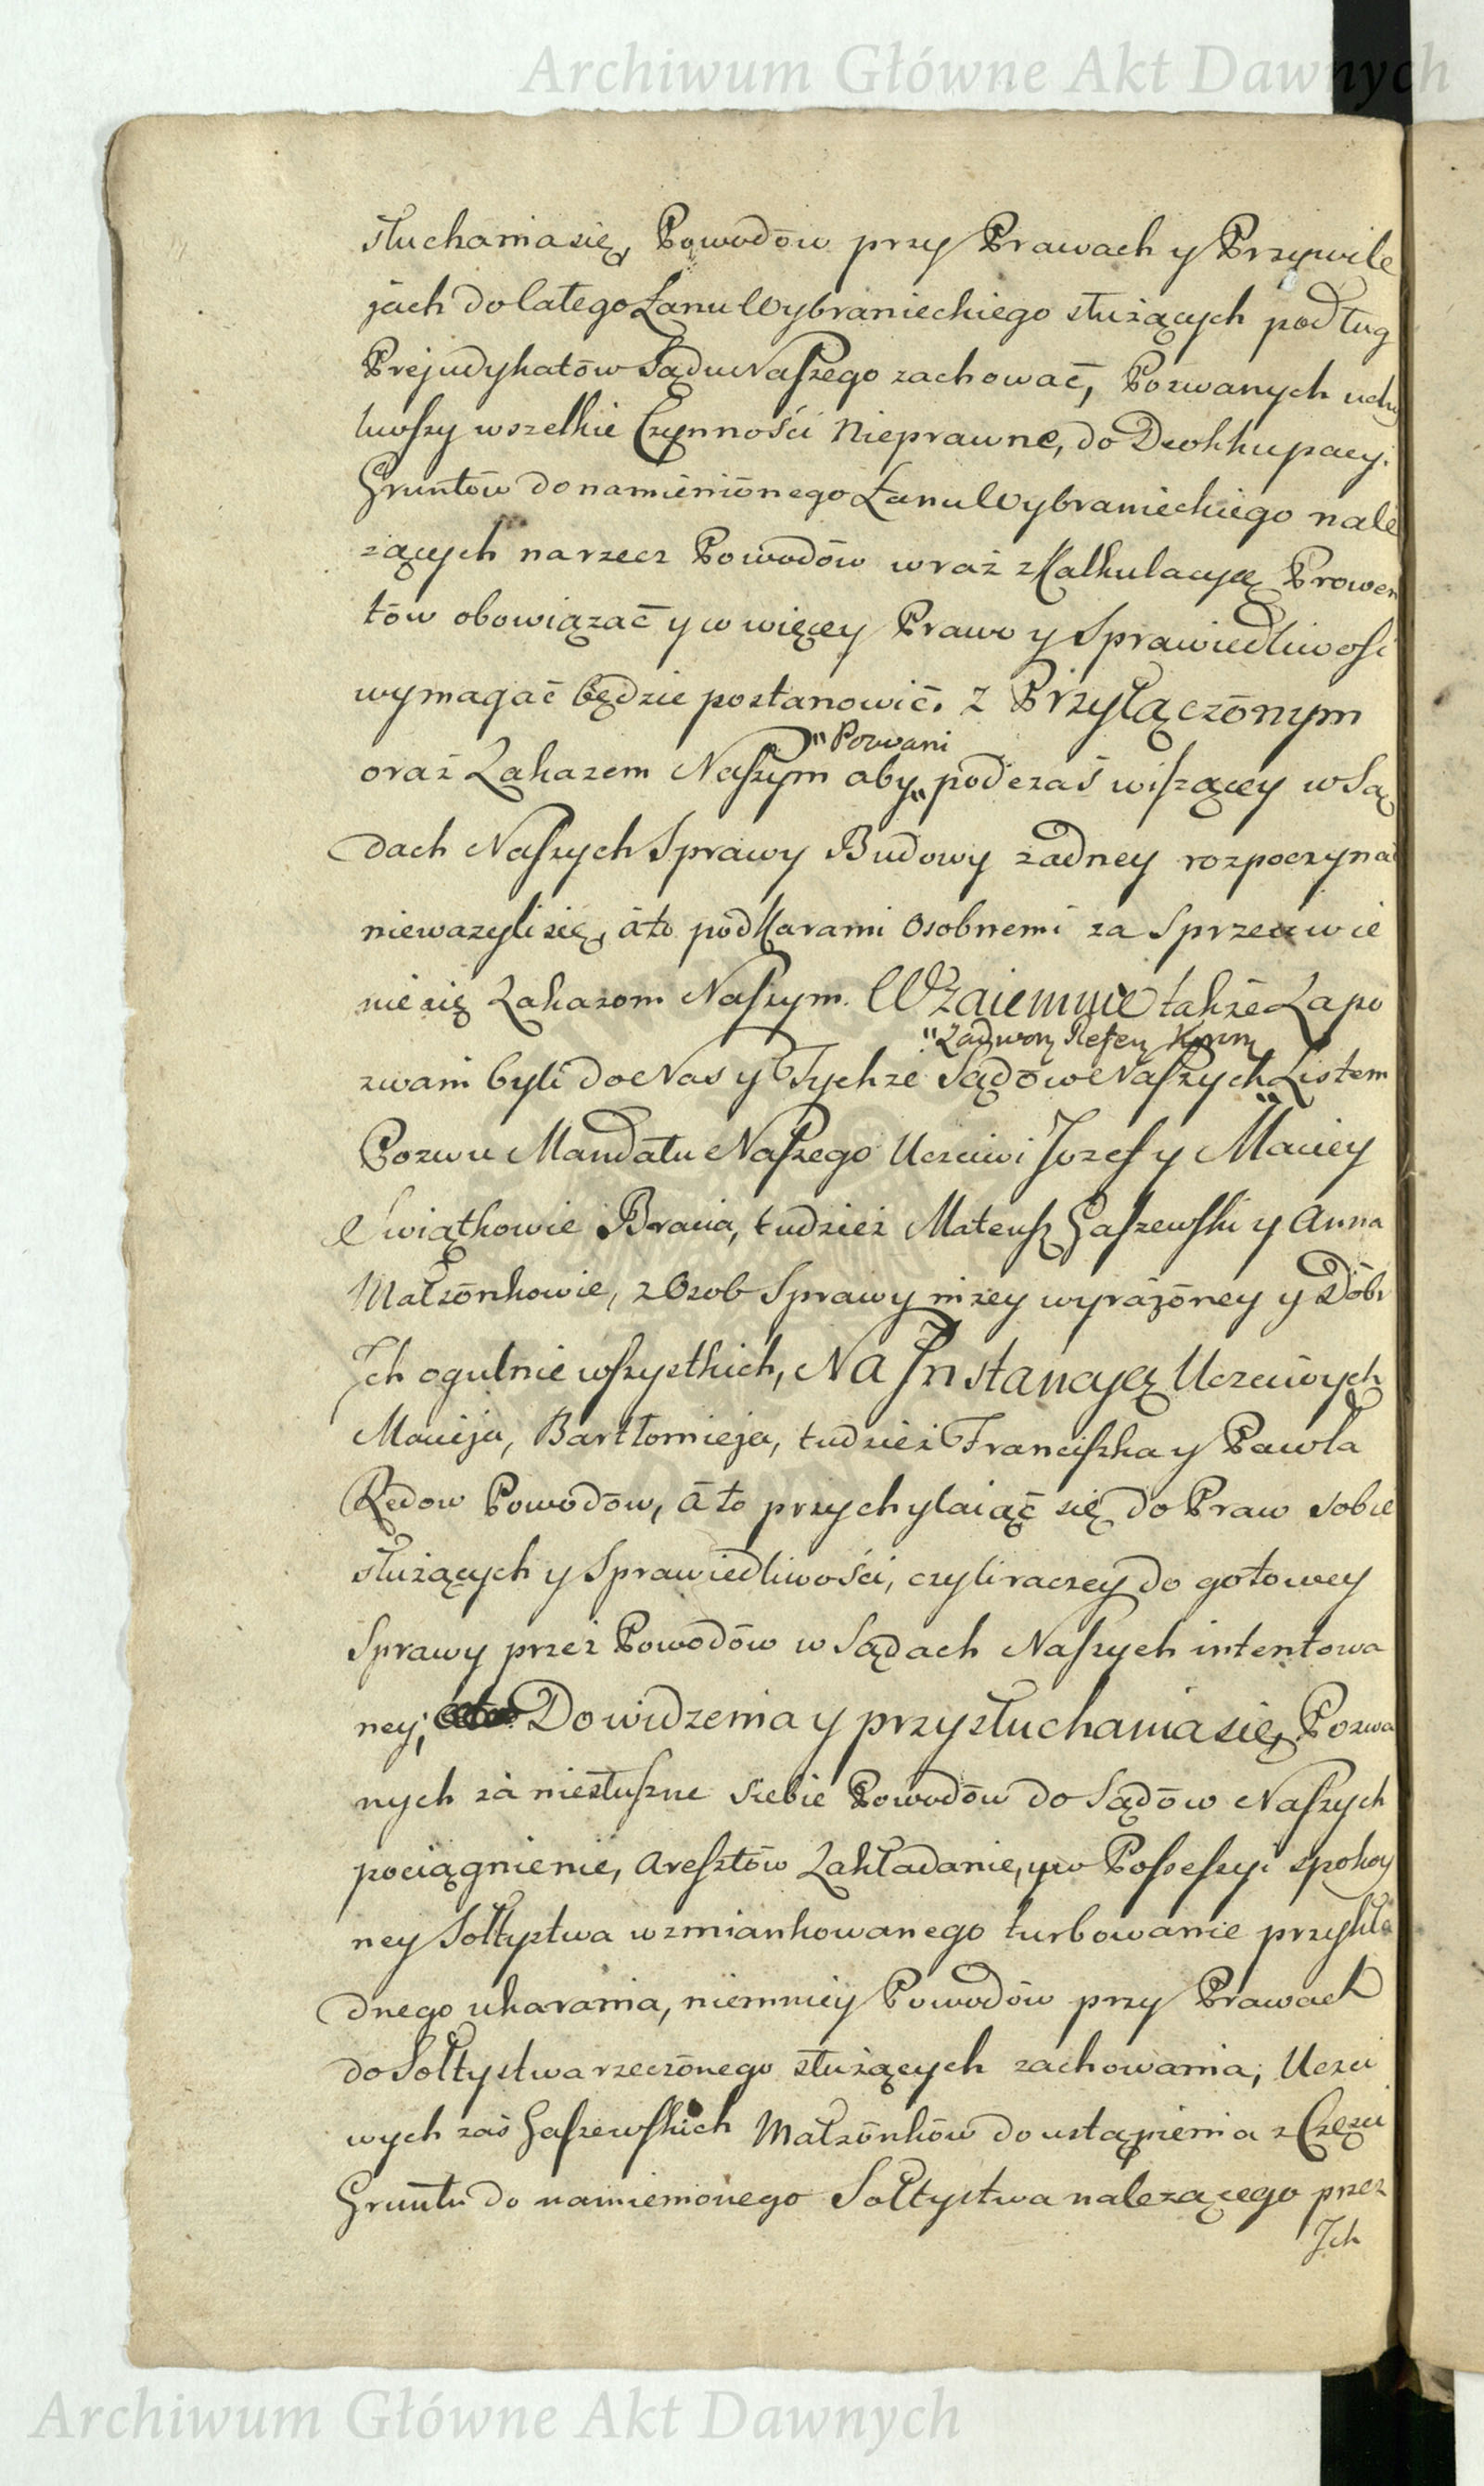 Archiwum Główne Akt Dawnych
słuchania się, Powodów przy Prawach y Przywile
jach do całego Łanu Wybranieckiego służących podług
Prejudykatów Sądu Naszego zachować, Pozwanych uchy
liwszy wszelkie Czynności Nieprawne, do Deokkupacyi
Gruntów do namieniónego Łanu Wybranieckiego nale
żących na rzecz Powodów wraz z Kalkulacyą Prowen
tów obowiązać y co więcey Prawo y Sprawiedliwość
wymagać będzie postanowić. Z Przyłączónym
"Pozwani
oraz Zakazem Naszym aby " podczas wiszącey w Są
dach Naszych Sprawy Budowy żadney rozpoczynać
nieważyli się, á to pod Karami Osobnemi za Sprzeciwie
nie się Zakazom Naszym. Wzaiemnie także Zapo
"Zadworn Refen Kornn
zwani byli do Nas y Tychże Sądów Naszych " Listem
Pozwu Mandatu Naszego Uczciwi Jozef y Maciey
Swiątkowie Bracia, tudzież Mateusz Gaszewski y Anna
Małżónkowie, z Osob Sprawy niżey wyrażóney y Dóbr
Jch ogulnie wszystkich, Na Jnstancyą Uczciwych
Macieja, Bartłomieja, tudzież Franciszka y Pawła
Rędow Powodów, á to przychylaiąc się do Praw sobie
służących y Sprawiedliwości, czyli raczey do gotowey
Sprawy przez Powodów w Sądach Naszych intentowa
ney; Do widzenia y przysłuchania się, Pozwa
nych zá niesłuszne siebie Powodów do Sądów Naszych
pociągnienie, Aresztów Zakładanie, y w Possessyi spokoy
ney Sołtystwa wzmiankowanego turbowanie przykła
dnego ukarania, niemniey Powodów przy Prawach
do Sołtystwa rzeczónego służących zachowania; Uczci
wych zaś Gaszewskich Małżónków do ustąpienia z Części
Gruntu do namienionego Sołtystwa należącego przez
Jch
Archiwum Główne Akt Dawnych